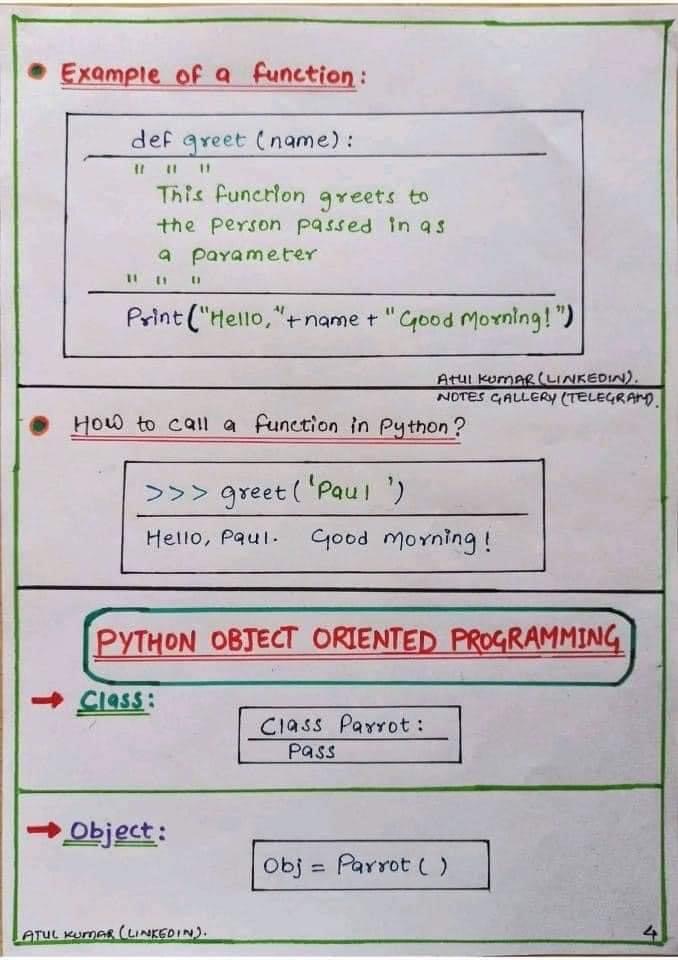 Example of a function:
def greet (name):
" " "
This function greets to
the person passed in as
a parameter
" " "
Print("Hello,"+name+"Good Morning!")
ATUL KUMAR(LINKEDIN).
NOTES GALLERY(TELEGRAM).
How to call a function in Python?
>>> greet('Paul ')
Hello, Paul. Good morning!
PYTHON OBJECT ORIENTED PROGRAMMING
Class:
Class Parrot:
Pass
Object:
Obj = Parrot ( )
ATUL KUMAR(LINKEDIN).
4